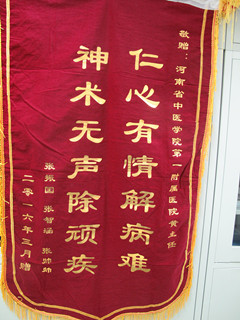 敬赠：河南省中医学院第一附属医院黄主任
仁心有情解病难
神术无声除顽疾
张振国 张智涵 张帅帅
二零一六年三月赠